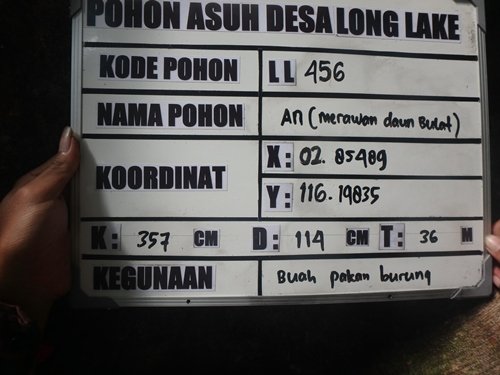 POHON ASUH DESA LONG LAKE
KODE POHON LL 456
NAMA POHON An (merawan daun Bulat)
KOORDINAT X: 02. 85489
Y: 116.19835
K: 357 CM D: 114 CM T: 36 M
KEGUNAAN Buah pakan burung